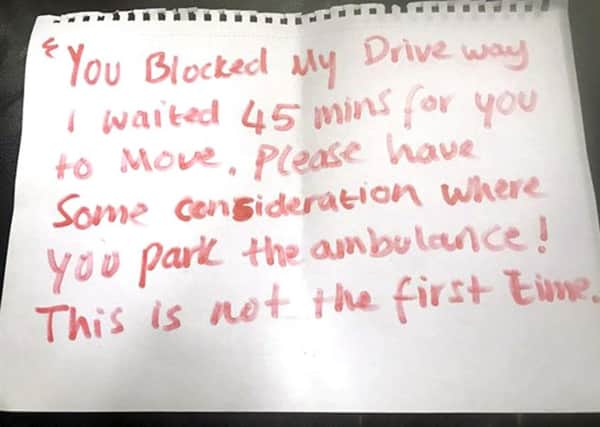 You Blocked My Driveway
I waited 45 mins for you
to Move. Please have
Some consideration where
you park the ambulance!
This is not the first time.